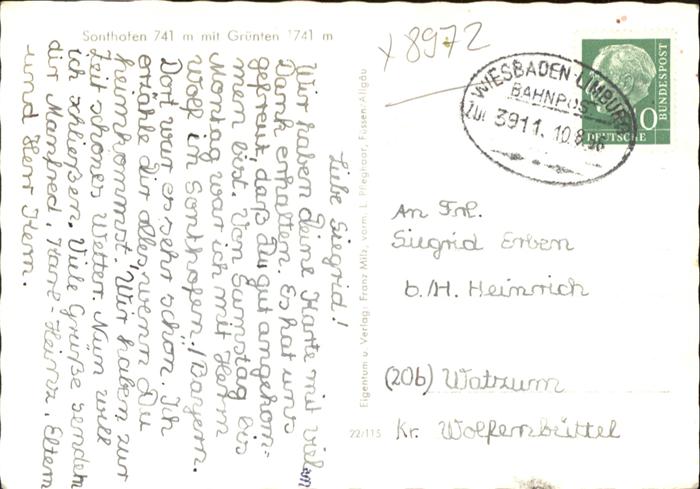 Sonthofen 741 m mit Grünten 1741 m
x 8972
Liebe Siegrid!
Wir haben deine Karte mit vielem
Dank erhalten. Es hat uns
gefreut, daß Du gut angekom-
men bist. Von Samstag bis
Montag war ich mit Herrn
Wolf in Sonthofen./Bayern.
Dort war es sehr schön. Ich
erzähle dir alles, wenn Du
heimkommst. Wir haben zur
Zeit schönes Wetter. Nun will
ich schließen. Viele Grüße senden
dir Manfred, Karl-Heinz, Eltern
und Herr Herm.
Eigentum u. Verlag: Franz Milz, vorm. L. Pfleghaar, Füssen-Allgäu
22/115
WIESBADEN-LIMBURG
BAHNPOST
ZUG 3911 10.8.
DEUTSCHE
BUNDESPOST
An Frl.
Siegrid Erben
b./H. Heinrich
(20b) Watzum
Kr. Wolfenbüttel